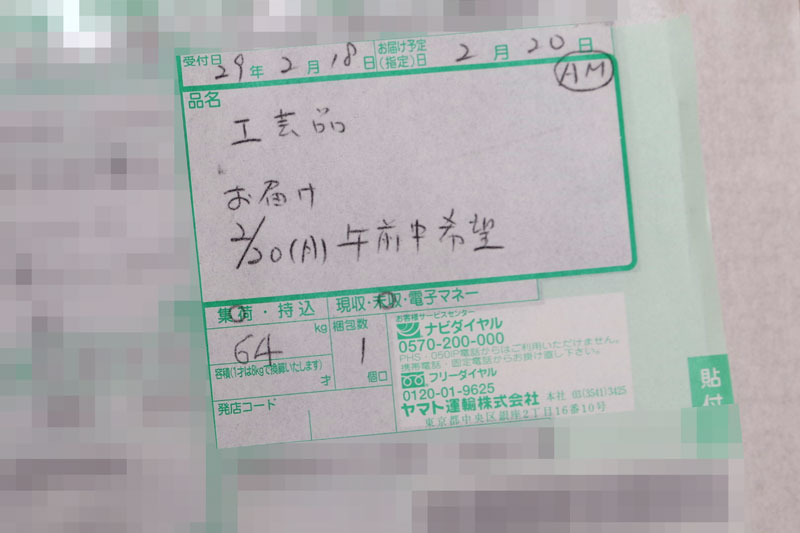 受付日 29年 2月 18日 お届け予定(指定)日 2月 20日
AM
品名
工芸品
お届け
2/20(月)午前中希望
集荷・持込 現収・未収・電子マネー
64 kg 梱包数 1 個口
容積(1才は8kgで換算いたします) 才
発店コード
お客様サービスセンター
ナビダイヤル
0570-200-000
PHS・050IP電話からはご利用いただけません。
携帯電話・固定電話からお掛け直し下さい。
フリーダイヤル
0120-01-9625
ヤマト運輸株式会社 本社 03(3541)3425
東京都中央区銀座2丁目16番10号
貼付